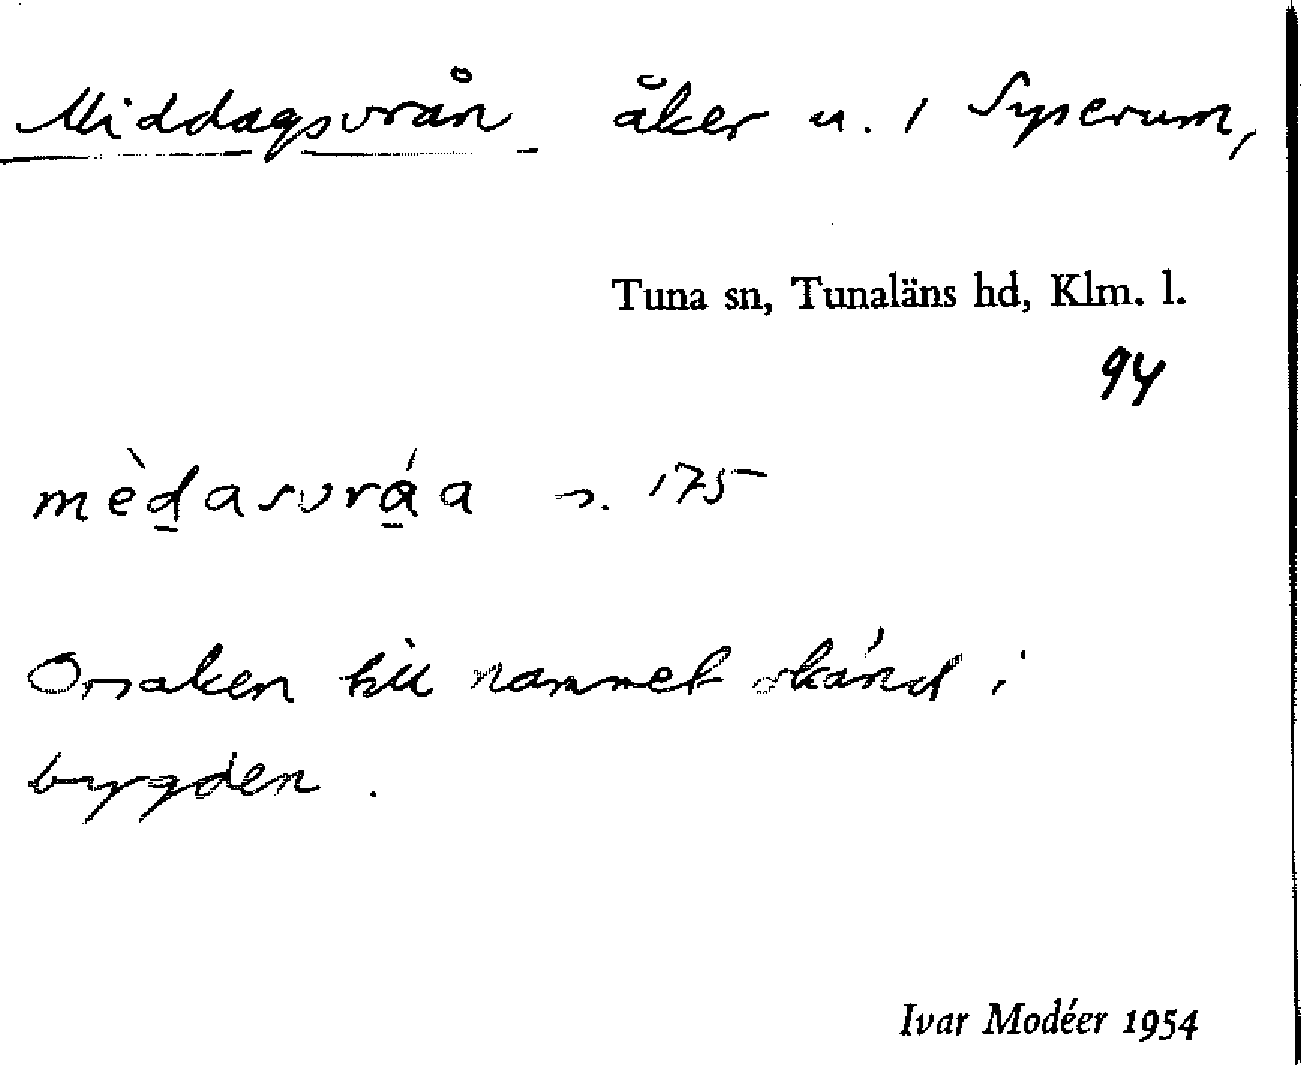 Middagsvrån åker u. 1 Syserum,
Tuna sn, Tunaläns hd, Klm. l.
94
mèdasvráa s. 175
Orsaken till namnet okänd i
bygden.
Ivar Modéer 1954